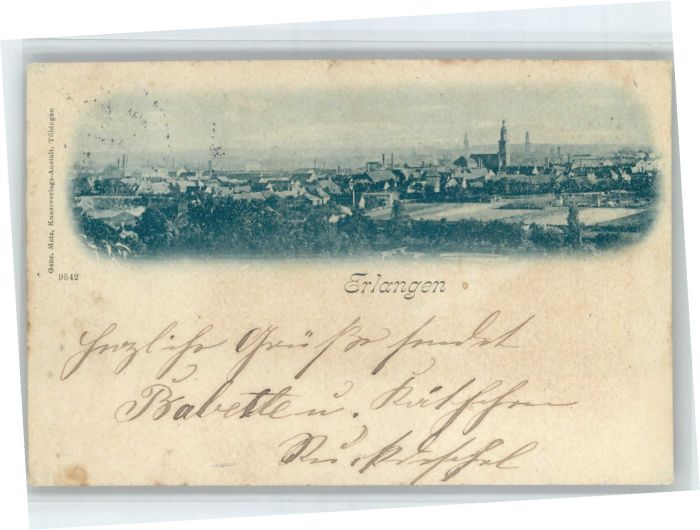 Gebr. Metz, Kunstverlags-Anstalt, Tübingen
9542
Erlangen
Herzliche Grüße sendet
Babette u. Käthchen
Ruckdeschel